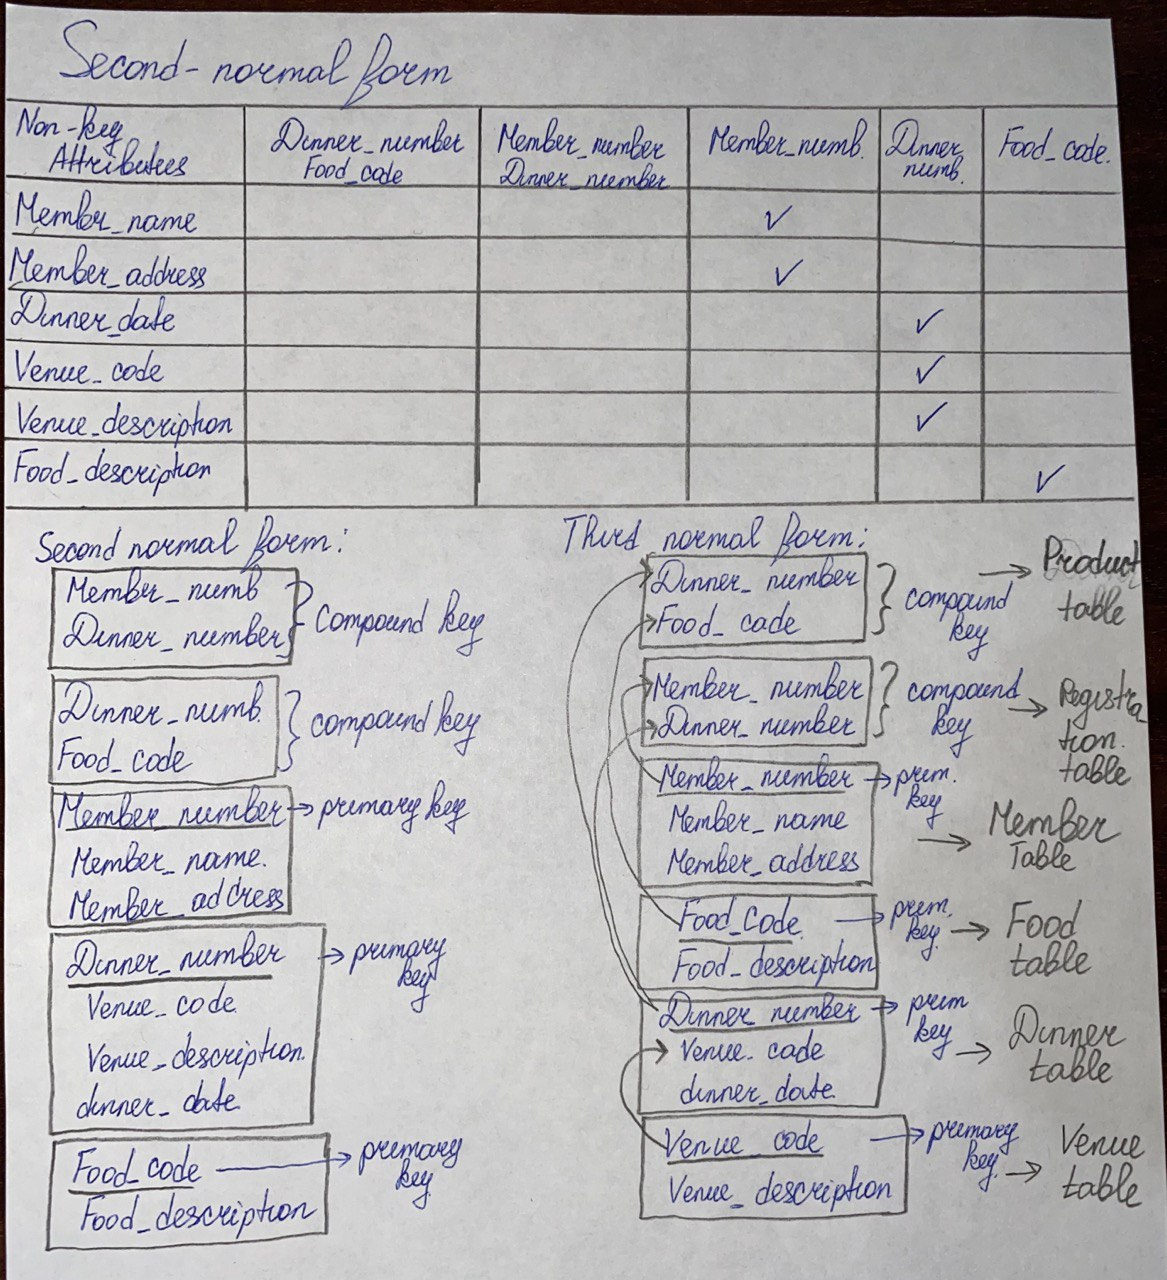 Second-normal form
Non-key
Attributes
Dinner_number
Food_code
Member_number
Dinner_number
Member_numb.
Dinner
numb.
Food_code.
Member_name ✓
Member_address ✓
Dinner_date ✓
Venue_code ✓
Venue_description ✓
Food_description ✓
Second normal form:
Member_numb
Dinner_number
compound key
Dinner_numb.
Food_code
compound key
Member_number → primary key
Member_name.
Member_address
Dinner_number → primary
key
Venue_code
Venue_description.
dinner_date.
Food_code → primary
key
Food_description
Third normal form:
Dinner_number
Food_cade
compound
key
→ Product
table
Member_number
Dinner_number
compound
key
→ Registra
tion.
table
Member_number → prim.
key
Member_name
Member_address
→ Member
Table
Food_Code. → prim.
key
Food_description
→ Food
table
Dinner_number → prim
key
Venue_cade
dinner_date.
→ Dinner
table
Venue_code → primary
key.
Venue_description
→ Venue
table